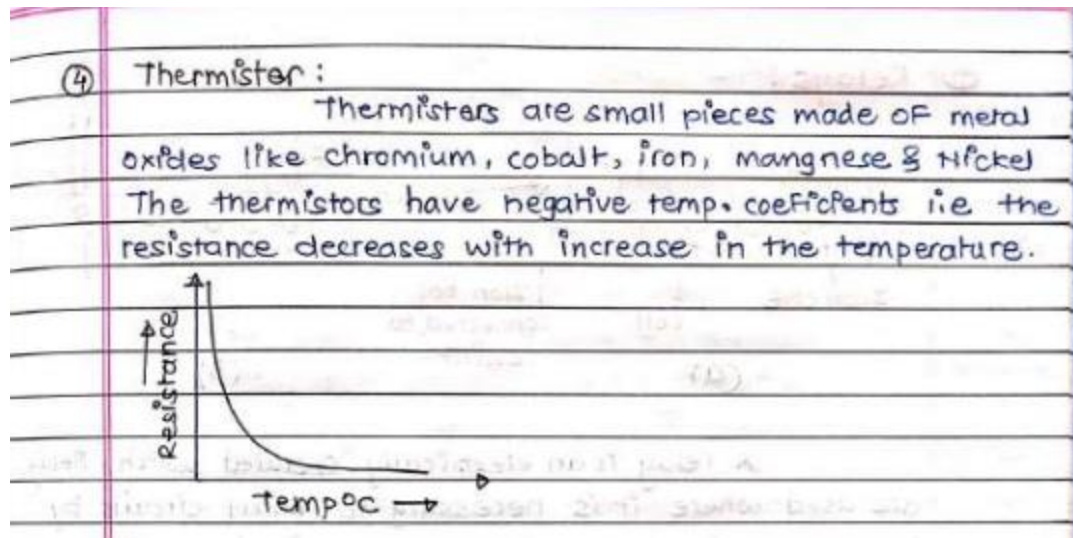 ④ Thermister :
Thermisters are small pieces made of metal
oxides like chromium, cobalt, iron, mangnese & Nickel
The thermistors have negative temp. coefficients i.e the
resistance decreases with increase in the temperature.
Resistance →
Temp°C →